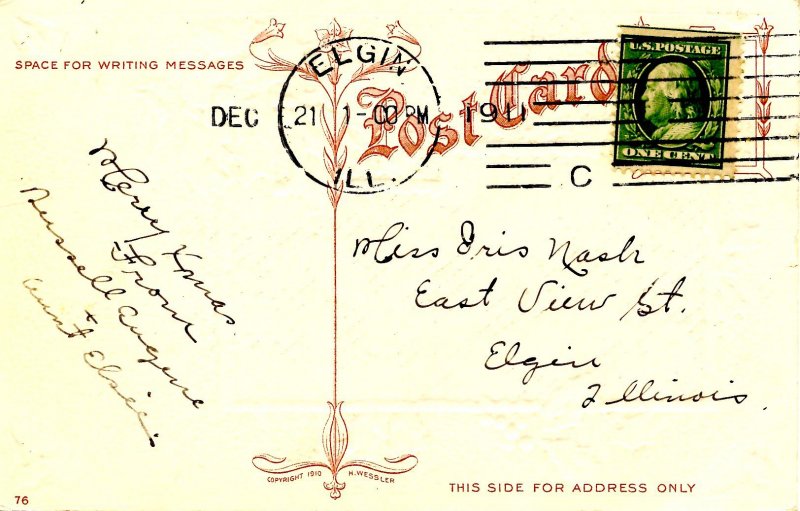 SPACE FOR WRITING MESSAGES
Post Card
ELGIN
DEC 21 1-00 PM 1911
ILL.
C
U.S. POSTAGE
ONE CENT
Merry Xmas
From
Russell Eugene
+
Aunt Elsie
Miss Iris Nash
East View St.
Elgin
Illinois.
COPYRIGHT 1910 H. WESSLER
76
THIS SIDE FOR ADDRESS ONLY